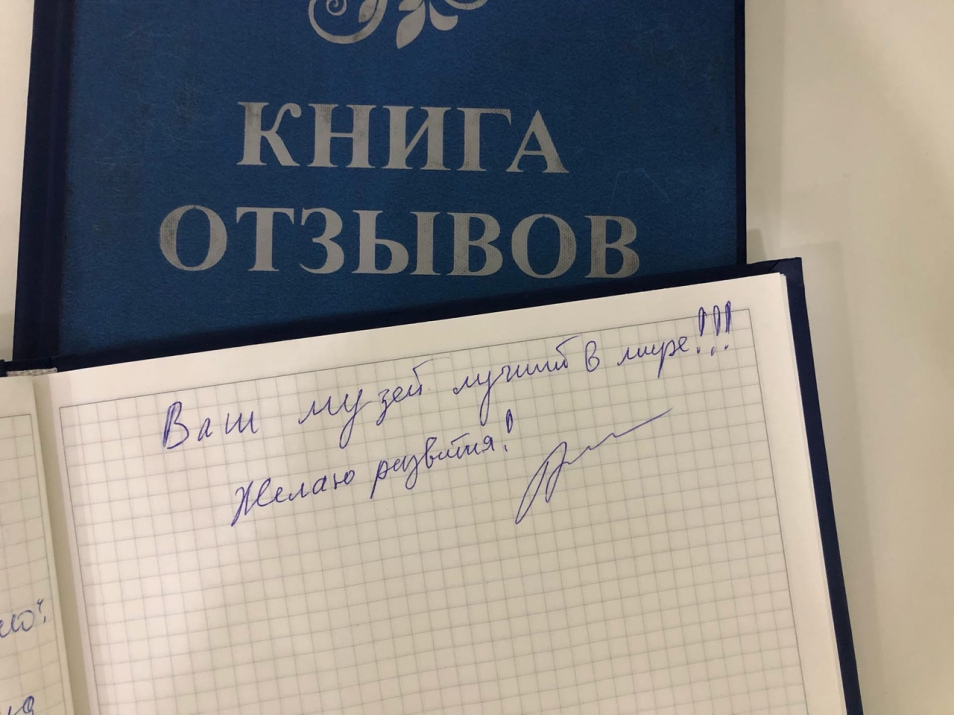 КНИГА
ОТЗЫВОВ
Ваш музей лучший в мире!!!
Желаю развития!